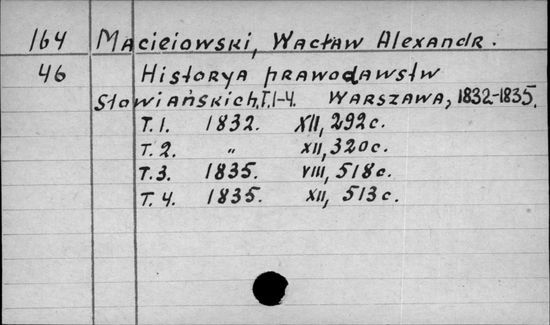 164 Macieiowski, Wacław Alexandr.
46 Historya prawodawstw
Słowiańskich, T.1-4. Warszawa, 1832-1835.
T. 1. 1832. XII, 292 c.
T. 2. „ XII, 320 c.
T. 3. 1835. VIII, 518 c.
T. 4. 1835. XII, 513 c.